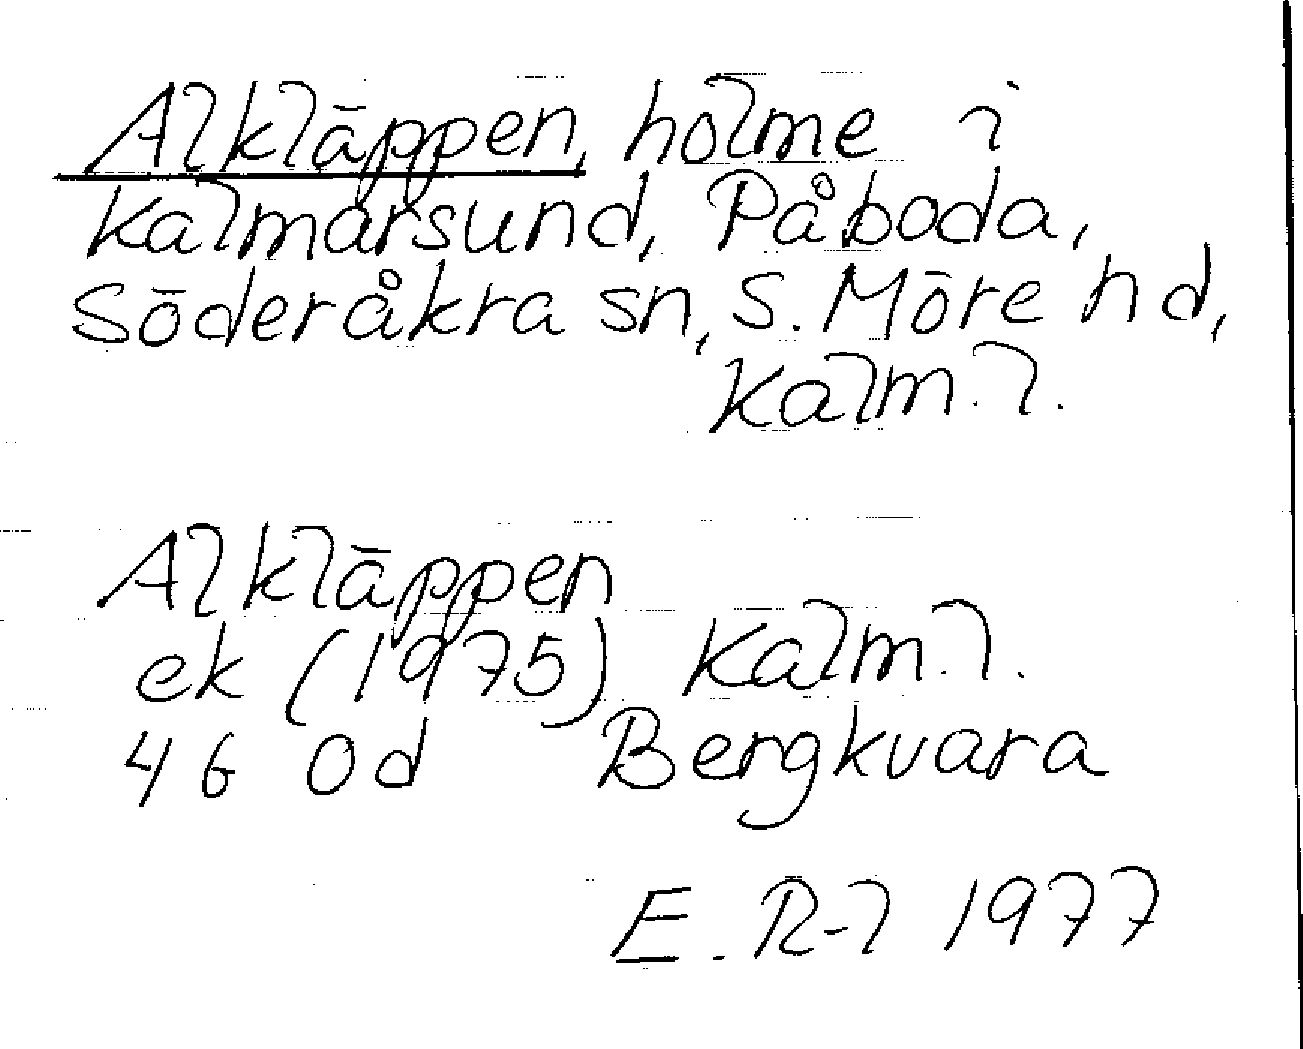 Alkläppen, holme i
Kalmarsund, Påboda,
Söderåkra sn, S. Möre hd,
Kalm. l.
Alkläppen
ek (1975) Kalm. l.
4G 0d Bergkvara
E. R-l 1977